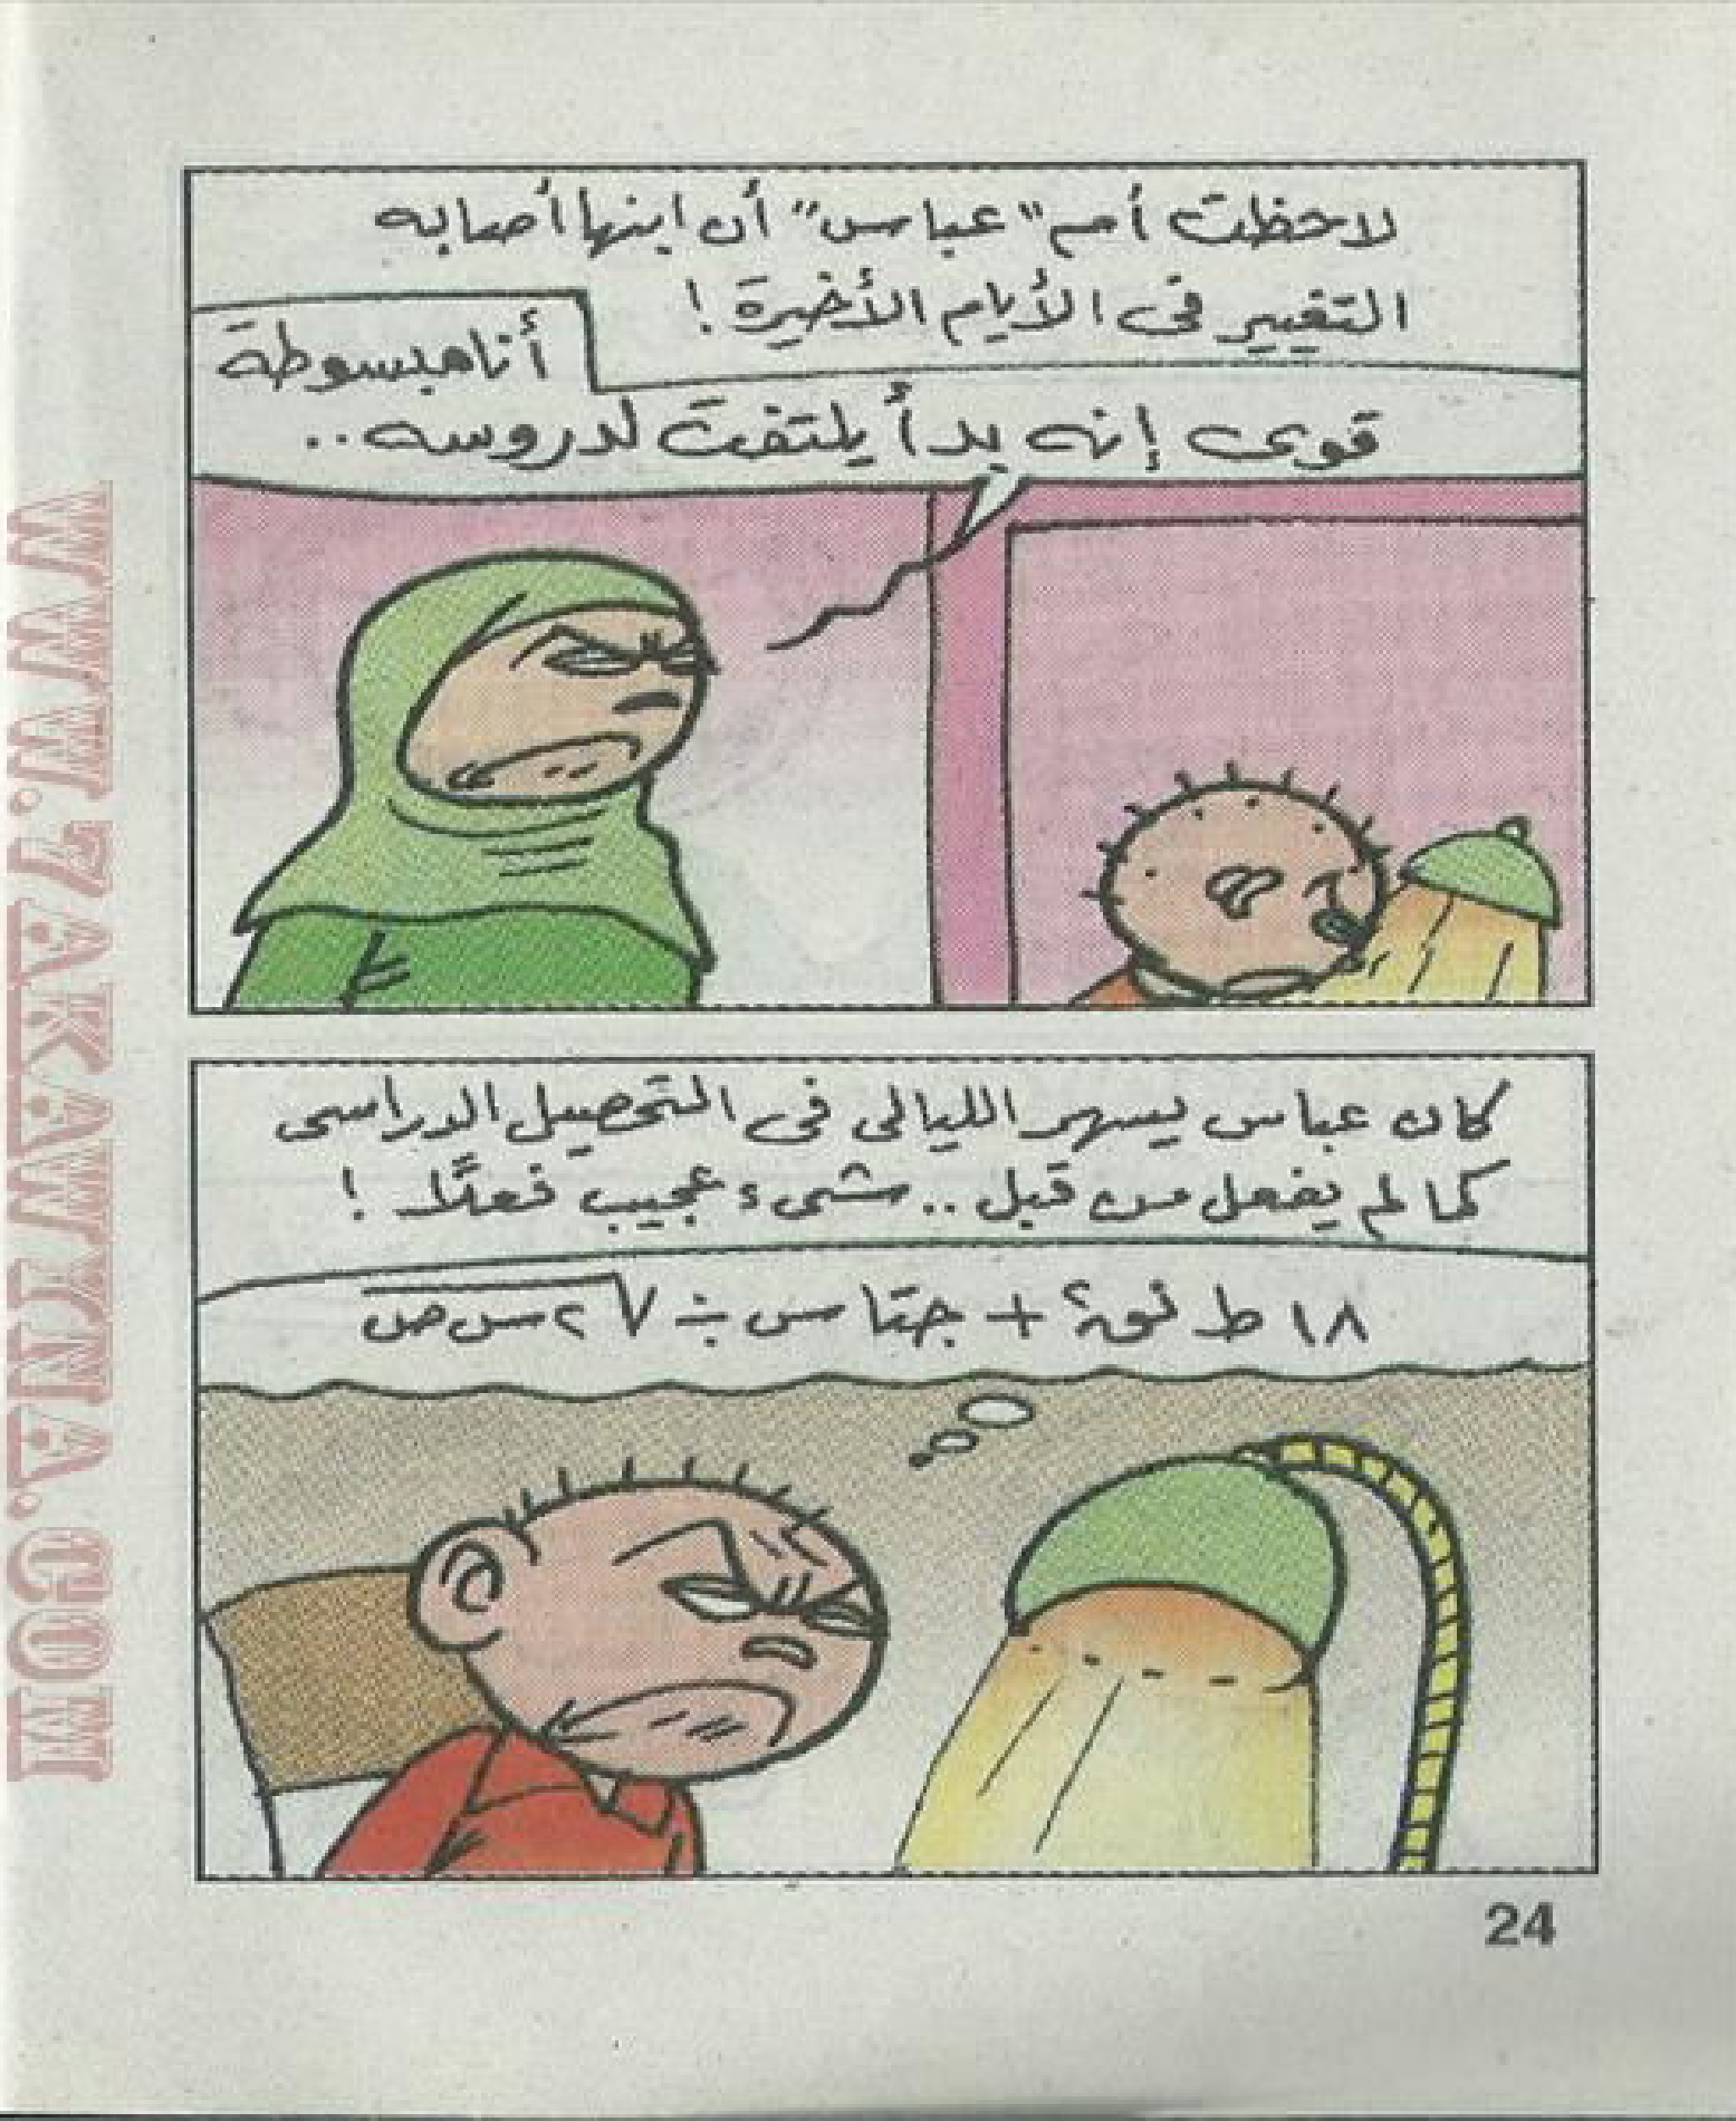 لاحظت أم "عباس" أن ابنها أصابه
التغيير فى الأيام الأخيرة !
أنا مبسوطة
قوى إنه بدأ يلتفت لدروسه ..
كان عباس يسهر الليالى فى التحصيل الدراسى
كما لم يفعل من قبل .. شىء عجيب فعلًا !
١٨ ط نق٢ + جتا س ÷ √٢ س ص
24
WWW.ZAKAWINA.COM